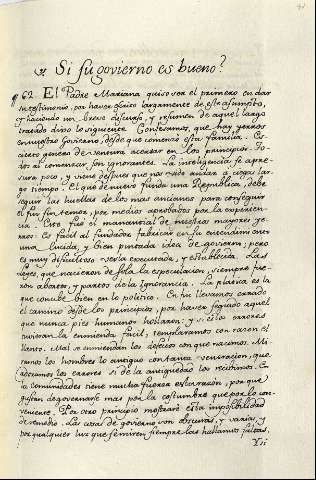 Si su govierno es bueno?
62. El Padre Mariana quiso ser el primero en dar
su testimonio, por haver escrito largamente de este asumpto,
y haciendo un breve discurso, y resumen de aquel largo
tratado dixo lo siguiente. Confesamos, que hay yerros
en nuestro Govierno, desde que comenzò esta familia. Es
cierto genero de ventura acertar en los principios. To-
dos al comenzar son ignorantes. La inteligencia se apre-
sura poco, y viene despues que nos vido andar a ciegas lar-
go tiempo. El que de nuevo funda una Republica, debe
seguir las huellas de los mas ancianos para conseguir
el fin sin temor, por medios aprobados por la experien-
cia. Este fue el manantial de nuestros mayores yer-
ros. Es facil al fundador fabricar en su entendimiento
una lucida, y bien pintada idea de govierno; pero
es muy dificultoso verla executada, y establecida. Las
leyes, que nacieron de sola la especulacion, siempre fue-
ron abortos, y partos de la ignorancia. La platica es la
que conube bien en lo politico. En fin llevamos errado
el camino desde los principios, por haver seguido aquel
que nunca pies humanos hollaron: y si estos errores
tuvieran la enmienda facil, templaramos con razon el
llanto. Mal se enmiendan los defectos con que nacimos. Mi-
ramos los hombres lo antiguo con tanta veneracion, que
adoramos los errores si de la antiguedad los recibimos. En
la Comunidades tiene mucha fuerza esta razon, por que
gustan de governarse mas por la costumbre que por lo con-
veniente. Por otro principio mostraré esta imposibilidad
de remedio. Las cosas de govierno son obscuras, y varias, y
por qualquier luz que se miren siempre las hallamos faltas.